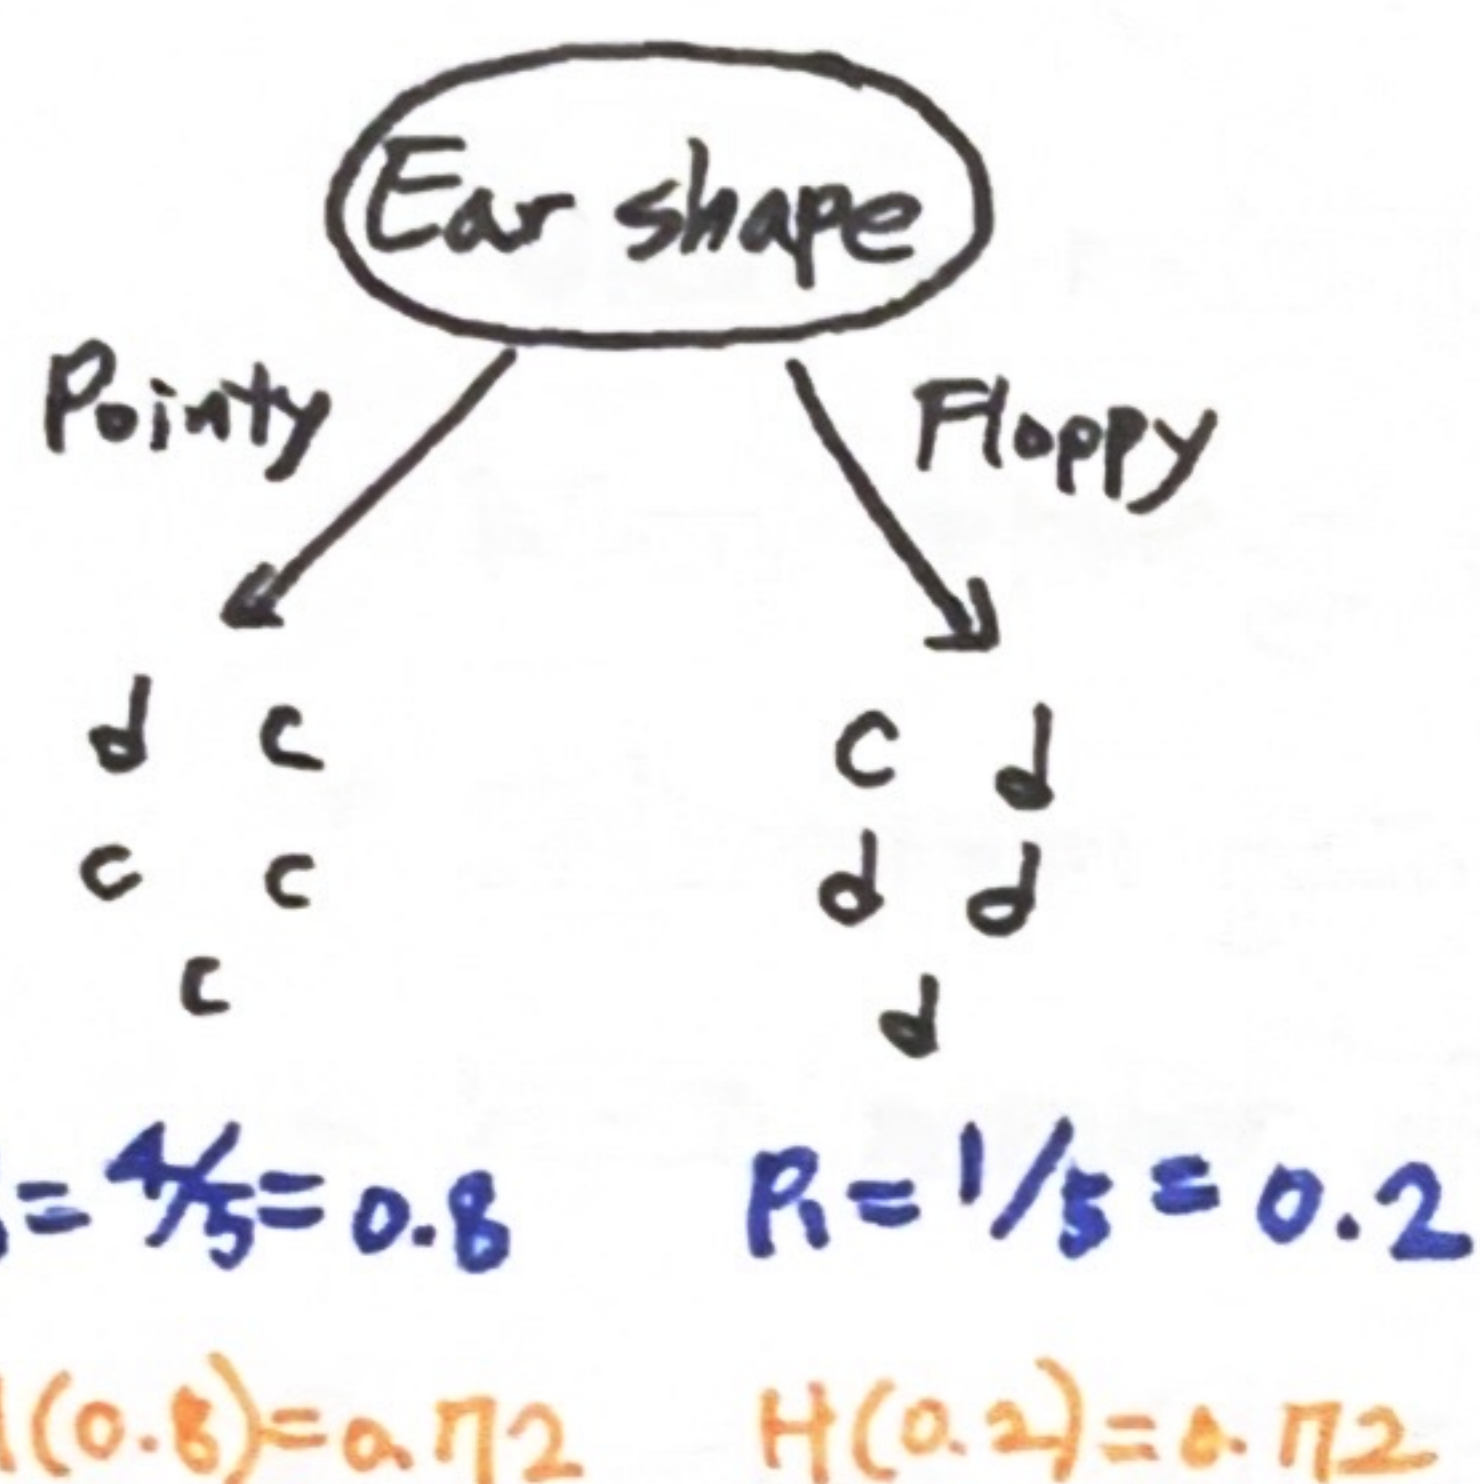 Ear shape
Pointy Floppy
d c c d
c c d d
c d
= 4/5 = 0.8 P₁ = 1/5 = 0.2
(0.8) = 0.72 H(0.2) = 0.72